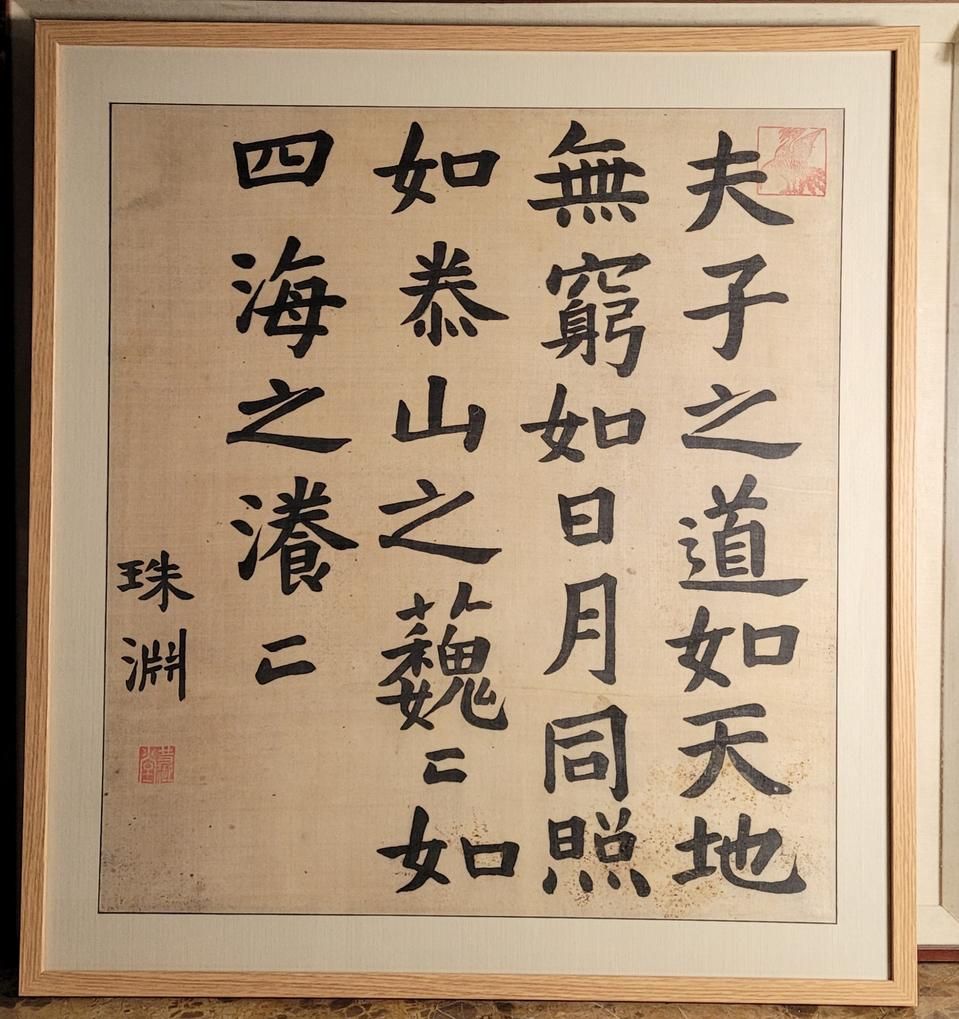 夫子之道如天地
無窮如日月同照
如泰山之蘶〻如
四海之瀁〻
珠淵